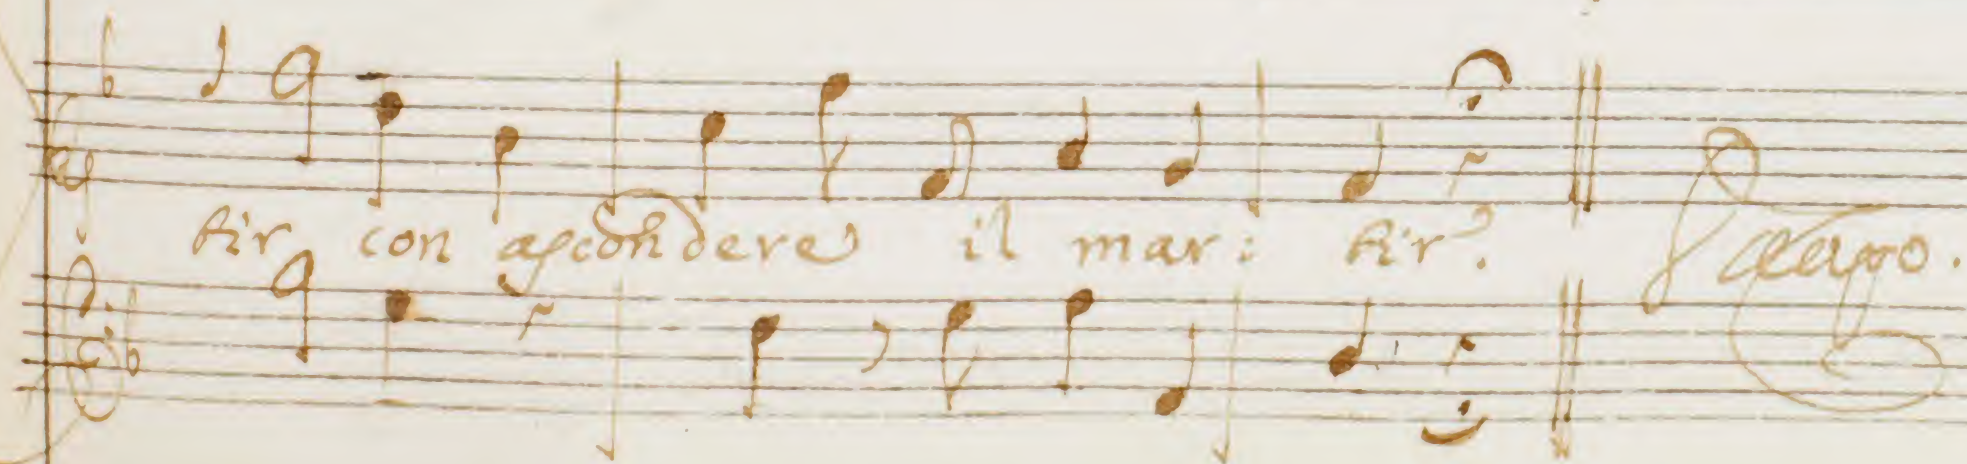 tir con ascondere il mar: tir? Da Capo.